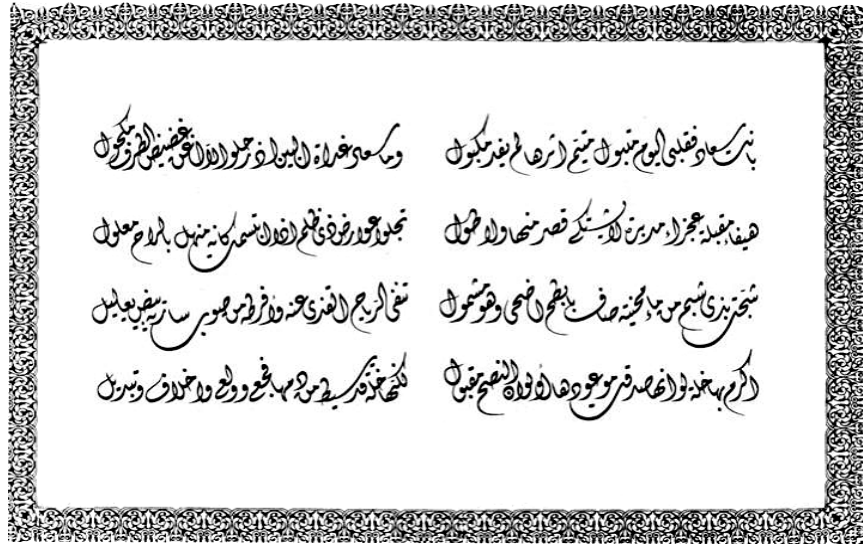 بانت سعاد فقلبي اليوم متبول متيم اثرها لم يفد مكبول وما سعاد غداة البين اذ رحلوا الا اغن غضيض الطرف مكحول
هيفاء مقبلة عجزاء مدبرة لا يشتكى قصر منها ولا طول تجلوا عوارض ذي ظلم اذا ابتسمت كانه منهل بالراح معلول
شجت بذي شبم من ماء محنية صاف بابطح اضحى وهو مشمول تنفى الرياح القذى عنه وافرطه من صوب سارية بيض يعاليل
اكرم بها خلة لو انها صدقت موعودها أو لو ان النصح مقبول لكنها خلة قد سيط من دمها فجع وولع واخلاف وتبديل